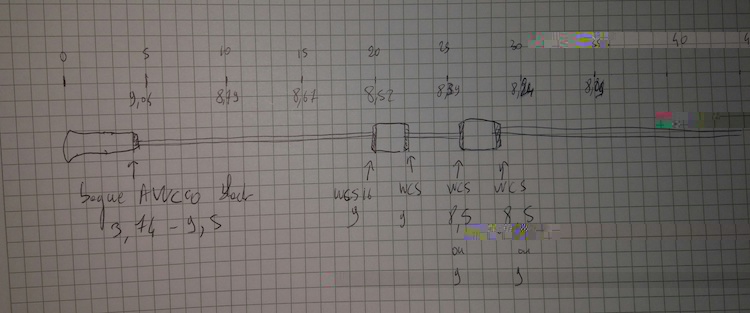 0 5 10 15 20 25 30 40
9,04 8,79 8,67 8,52 8,39 8,24 8,09
bague AWCGO
3,74 - 9,5
WGS16 WCS WCS WCS
9 9 8,5 8,5
ou ou
9 9